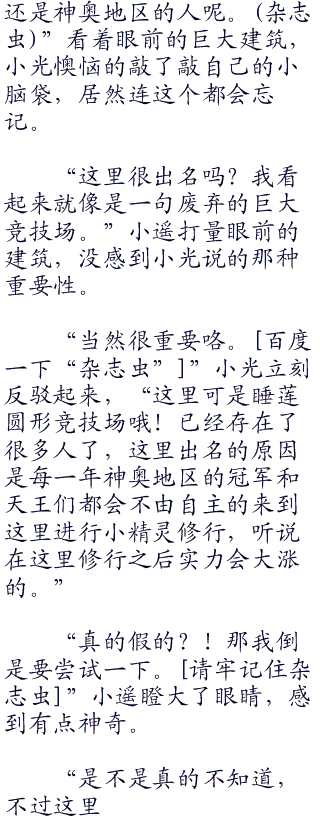 还是神奥地区的人呢。(杂志
虫)”看着眼前的巨大建筑，
小光懊恼的敲了敲自己的小
脑袋，居然连这个都会忘
记。
“这里很出名吗？我看
起来就像是一句废弃的巨大
竞技场。”小遥打量眼前的
建筑，没感到小光说的那种
重要性。
“当然很重要咯。[百度
一下“杂志虫”]”小光立刻
反驳起来，“这里可是睡莲
圆形竞技场哦！已经存在了
很多人了，这里出名的原因
是每一年神奥地区的冠军和
天王们都会不由自主的来到
这里进行小精灵修行，听说
在这里修行之后实力会大涨
的。”
“真的假的？！那我倒
是要尝试一下。[请牢记住杂
志虫]”小遥瞪大了眼睛，感
到有点神奇。
“是不是真的不知道，
不过这里